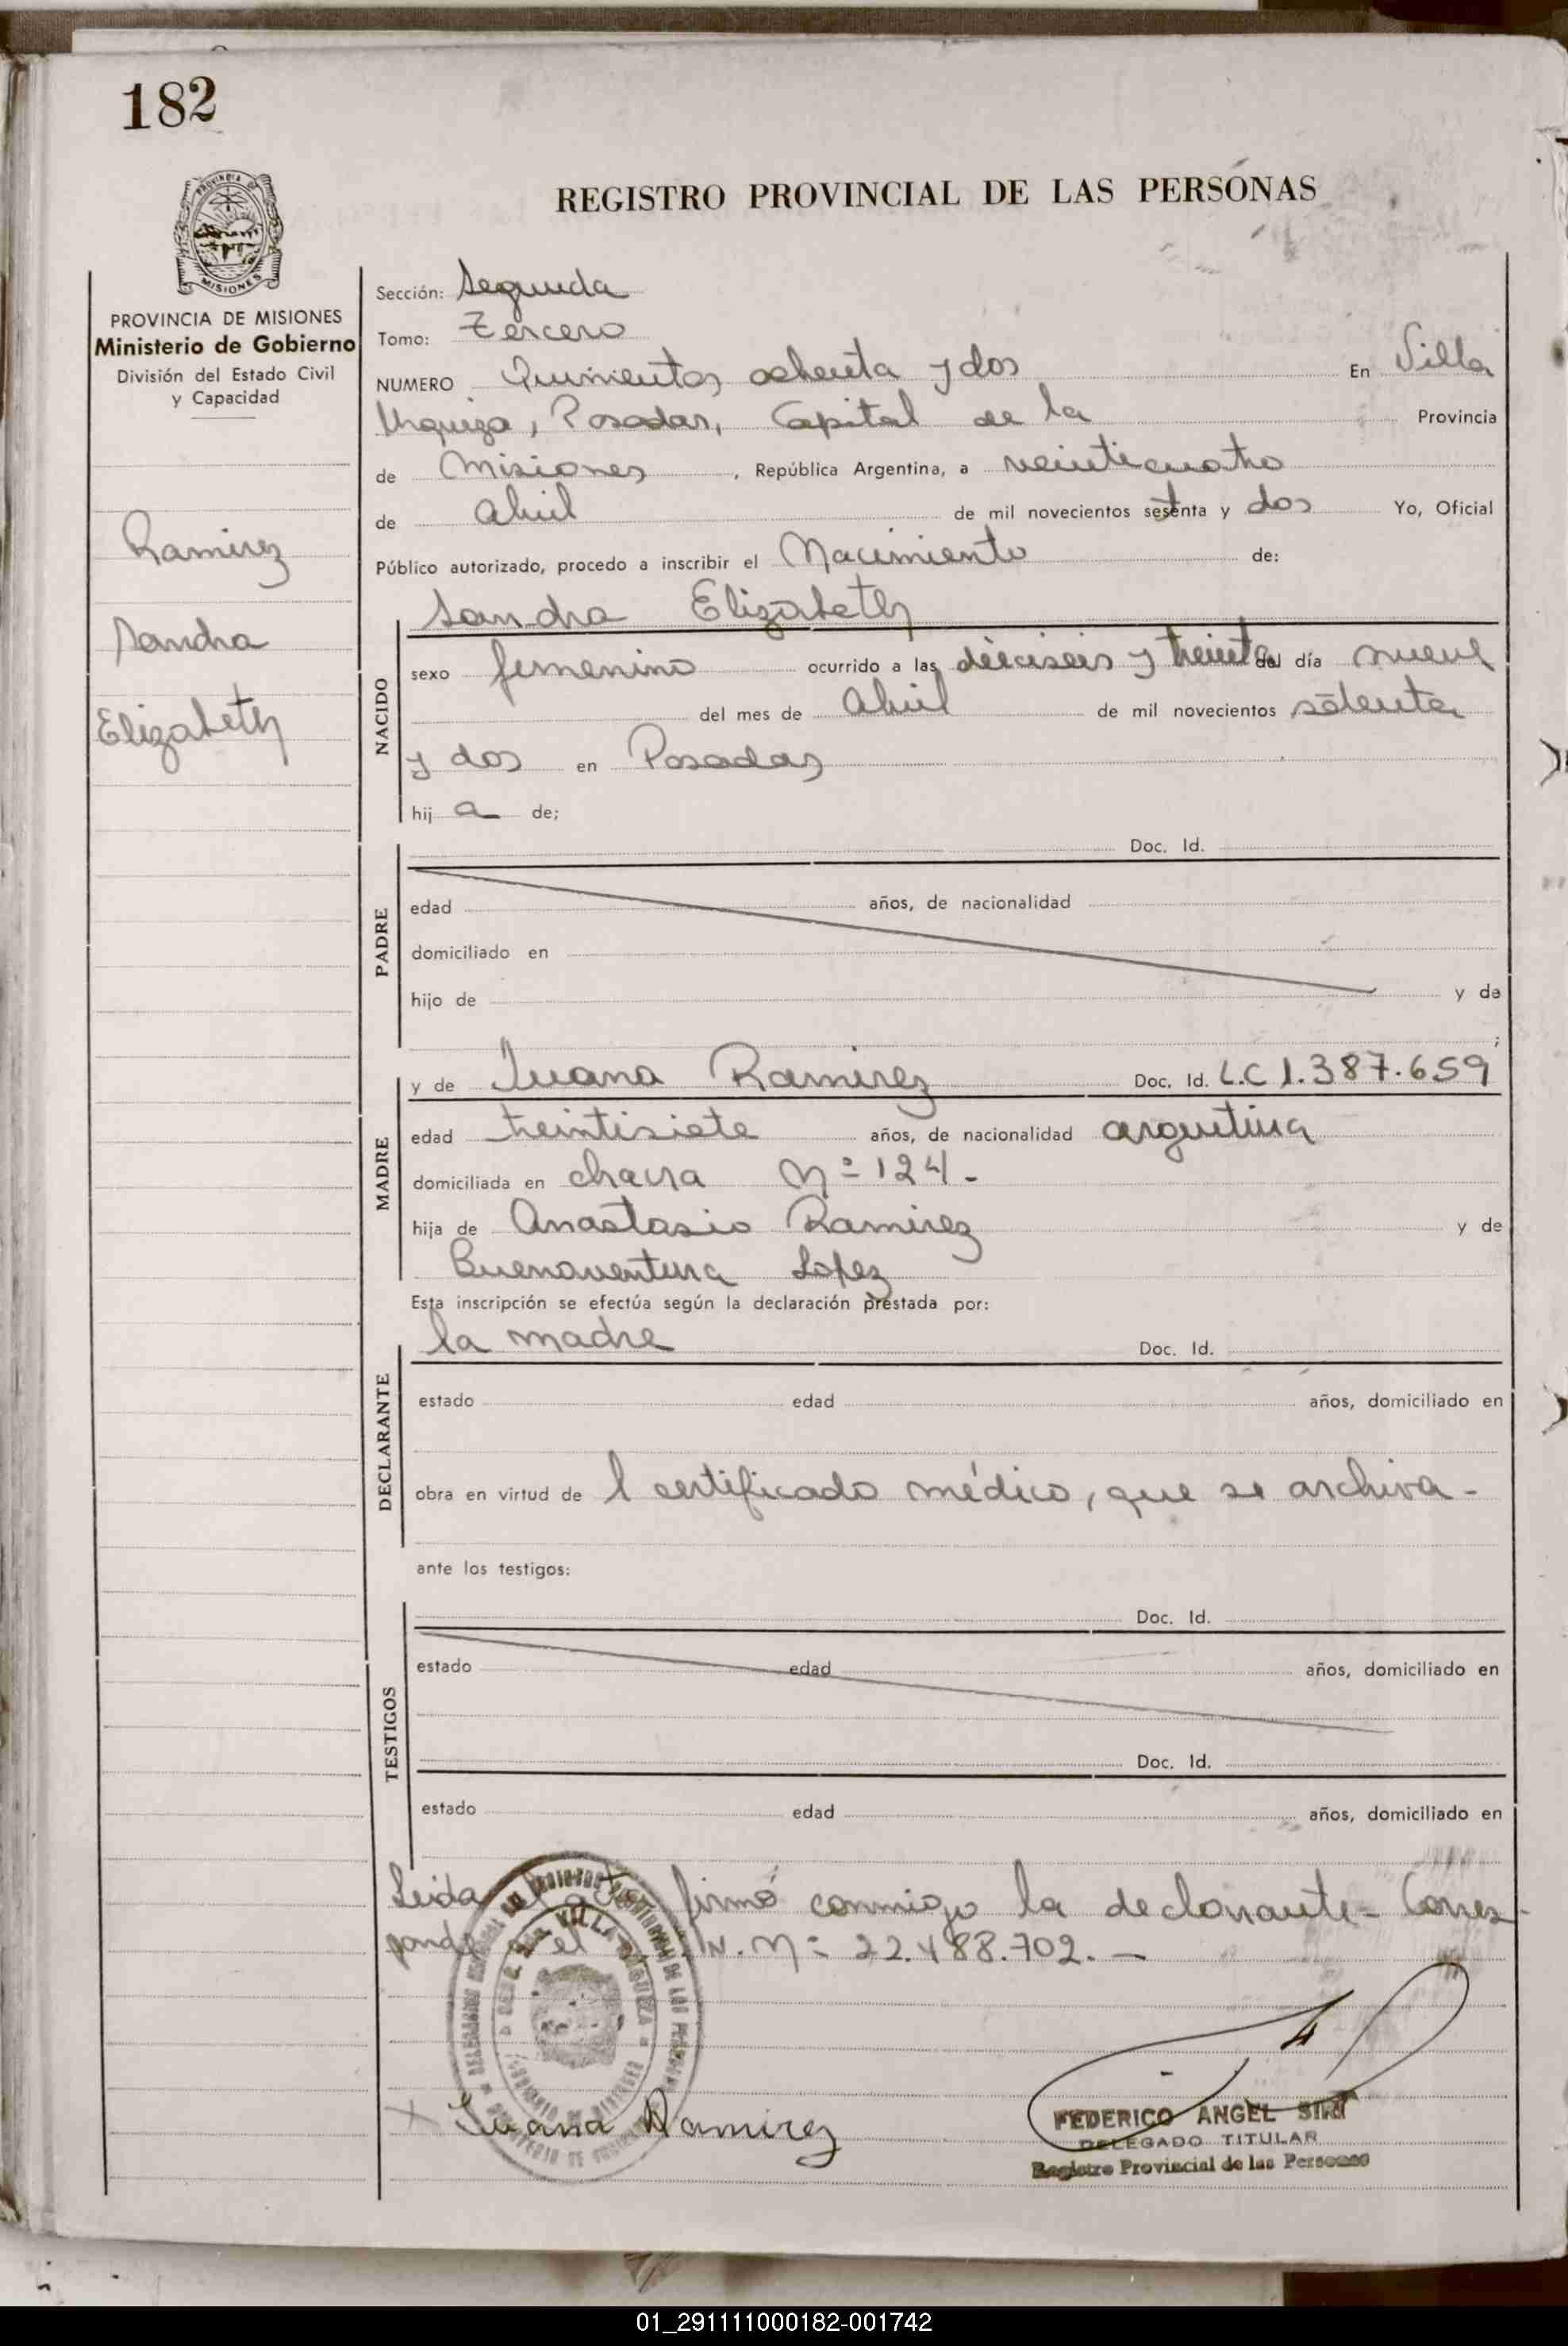 182
REGISTRO PROVINCIAL DE LAS PERSONAS
PROVINCIA DE
MISIONES
PROVINCIA DE MISIONES
Ministerio de Gobierno
División del Estado Civil
y Capacidad
Ramirez
Sandra
Elizabeth
Sección: Segunda
Tomo: Tercero
NUMERO Quinientos ochenta y dos En Villa
Urquiza, Posadas, Capital de la Provincia
de Misiones, República Argentina, a veinticuatro
de Abril de mil novecientos setenta y dos Yo, Oficial
Público autorizado, procedo a inscribir el Nacimiento de:
Sandra Elizabeth
NACIDO
sexo femenino ocurrido a las dieciseis y treinta del día nueve
del mes de Abril de mil novecientos setenta
y dos en Posadas
hij a de;
PADRE
Doc. Id.
edad años, de nacionalidad
domiciliado en
hijo de y de
;
MADRE
y de Juana Ramirez Doc. Id. L.C 1.387.659
edad treintisiete años, de nacionalidad argentina
domiciliada en chacra Nº 124-
hija de Anastasio Ramirez y de
Buenaventura Lopez
Esta inscripción se efectúa según la declaración prestada por:
DECLARANTE
la madre Doc. Id.
estado edad años, domiciliado en
obra en virtud de l certificado médico, que se archiva-
ante los testigos:
TESTIGOS
Doc. Id.
estado edad años, domiciliado en
Doc. Id.
estado edad años, domiciliado en
Leida el acta firmó conmigo la declarante- Corres-
ponde el N. Nº 22.488.702.-
VILLA URQUIZA
Juana Ramirez
FEDERICO ANGEL
DELEGADO TITULAR
Registro Provincial de las Personas
01_291111000182-001742